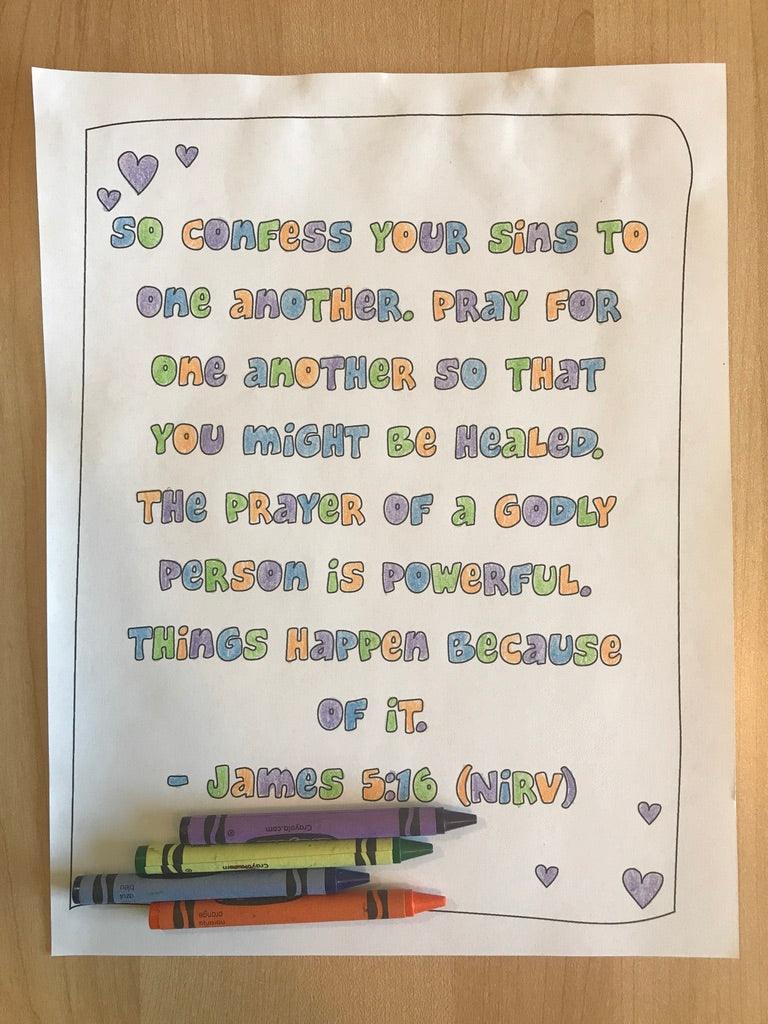 So confess your sins to
one another. Pray for
one another so that
you might be healed.
The prayer of a godly
person is powerful.
Things happen because
of it.
- James 5:16 (NIRV)
Crayola.com
azul
bleu
naranja
orange